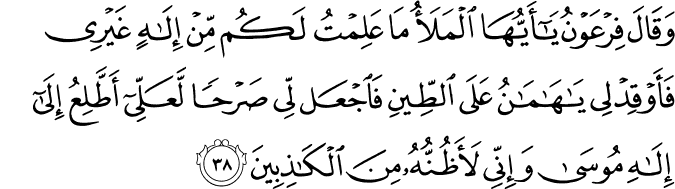 وَقَالَ فِرۡعَوۡنُ يَـٰٓأَيُّهَا ٱلۡمَلَأُ مَا عَلِمۡتُ لَكُم مِّنۡ إِلَـٰهٍ غَيۡرِى
فَأَوۡقِدۡ لِى يَـٰهَـٰمَـٰنُ عَلَى ٱلطِّينِ فَٱجۡعَل لِّى صَرۡحًا لَّعَلِّىٓ أَطَّلِعُ إِلَىٰٓ
إِلَـٰهِ مُوسَىٰ وَإِنِّى لَأَظُنُّهُۥ مِنَ ٱلۡكَـٰذِبِينَ ٣٨